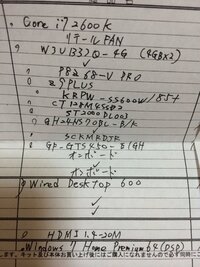 Core i7 2600k
リテールFAN
W3U1333Q-4G (4GB×2)
P8Z68-V PRO
Z9 PLUS
KRPW-SS600W/85+
CT128M4SSD2
ST2000DL003
GH24NS70BL-B/K
SCKMRDTR
GP-GTS450-E1GH
オンボード
オンボード
Wired Desktop 600
HDMI 1.4-20M
Windows 7 Home Premium 64(DSP)